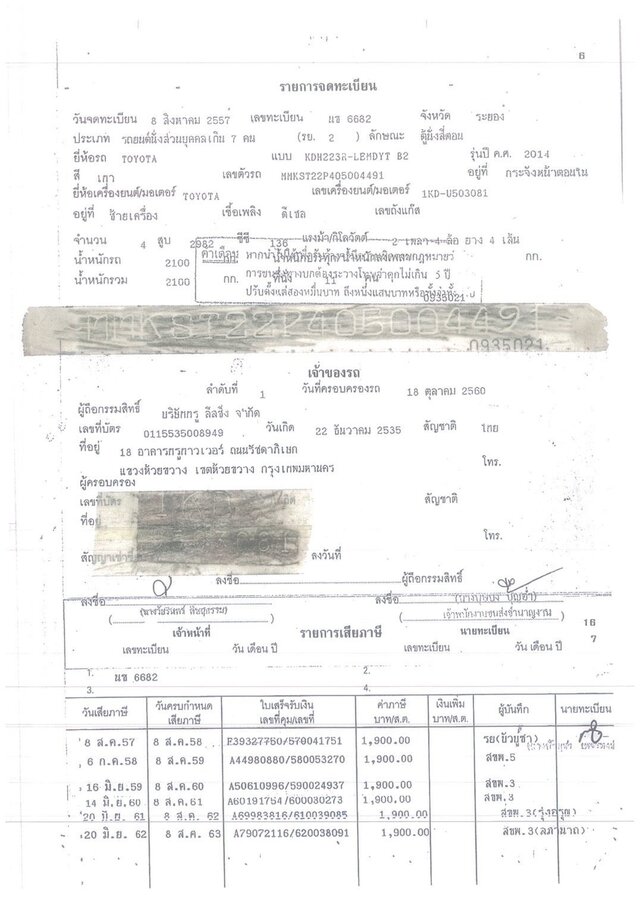 6
รายการจดทะเบียน
วันจดทะเบียน 8 สิงหาคม 2557 เลขทะเบียน นข 6682 จังหวัด ระยอง
ประเภท รถยนต์นั่งส่วนบุคคลเกิน 7 คน (รย. 2 ) ลักษณะ ตู้นั่งสี่ตอน
ยี่ห้อรถ TOYOTA แบบ KDH223R-LEMDYT B2 รุ่นปี ค.ศ. 2014
สี เทา เลขตัวรถ MMKST22P405004491 อยู่ที่ กระจังหน้าตอนใน
ยี่ห้อเครื่องยนต์/มอเตอร์ TOYOTA เลขเครื่องยนต์/มอเตอร์ 1KD-U503081
อยู่ที่ ซ้ายเครื่อง เชื้อเพลิง ดีเซล เลขถังแก๊ส
จำนวน 4 สูบ 2982 ซีซี 136 แรงม้า/กิโลวัตต์ 2 เพลา 4 ล้อ ยาง 4 เส้น
น้ำหนักรถ 2100 คำเตือน กก.
น้ำหนักรวม 2100 กก. ที่นั่ง 11 คน
ปรับตั้งแต่สองหมื่นบาท ถึงหนึ่งแสนบาทหรือทั้งจำทั้งปรับ
0935021
0935021
เจ้าของรถ
ลำดับที่ 1 วันที่ครอบครองรถ 18 ตุลาคม 2560
ผู้ถือกรรมสิทธิ์ บริษัทกรู ลีสซิ่ง จำกัด
เลขที่บัตร 0115535008949 วันเกิด 22 ธันวาคม 2535 สัญชาติ ไทย
ที่อยู่ 18 อาคารทรูทาวเวอร์ ถนนรัชดาภิเษก
แขวงห้วยขวาง เขตห้วยขวาง กรุงเทพมหานคร โทร.
ผู้ครอบครอง
เลขที่บัตร สัญชาติ
ที่อยู่
โทร.
สัญญาเช่าซื้อ ลงวันที่
ลงชื่อ ผู้ถือกรรมสิทธิ์
ลงชื่อ ลงชื่อ
เจ้าพนักงานขนส่งชำนาญงาน
เจ้าหน้าที่ รายการเสียภาษี นายทะเบียน 16
เลขทะเบียน วัน เดือน ปี เลขทะเบียน วัน เดือน ปี 7
1. นข 6682 2.
3. 4.
วันเสียภาษี วันครบกำหนดเสียภาษี ใบเสร็จรับเงิน เลขที่คุม/เลขที่ ค่าภาษี บาท/ส.ต. เงินเพิ่ม บาท/ส.ต. ผู้บันทึก นายทะเบียน
8 ส.ค.57 8 ส.ค.58 E39327750/570041751 1,900.00
6 ก.ค.58 8 ส.ค.59 A44980880/580053270 1,900.00 สขพ.5
16 มิ.ย.59 8 ส.ค.60 A50610996/590024937 1,900.00 สขพ.3
14 มิ.ย.60 8 ส.ค.61 A60191754/600030273 1,900.00 สขพ.3
20 มิ.ย. 61 8 ส.ค. 62 A69983816/610039085 1,900.00 สขพ.3(รุ่งอรุณ)
20 มิ.ย. 62 8 ส.ค. 63 A79072116/620038091 1,900.00 สขพ.3(ลภานาถ)